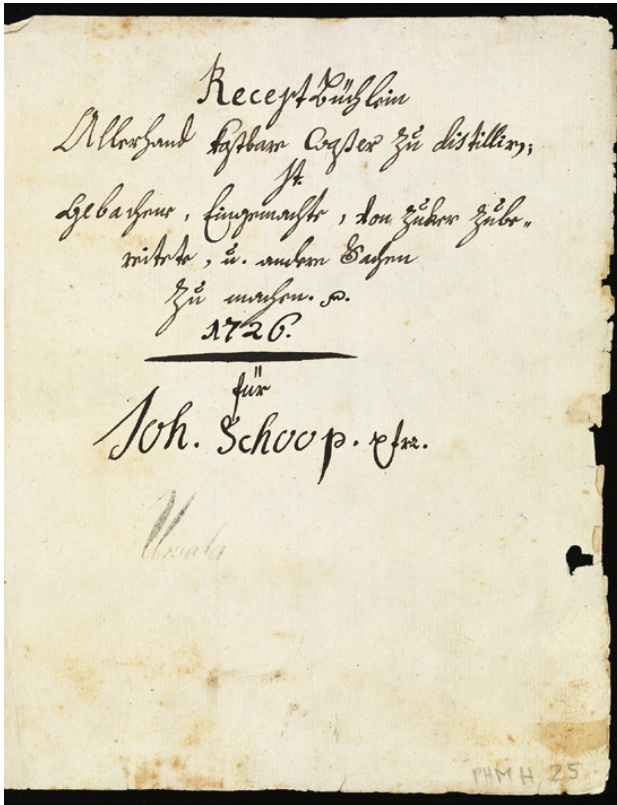 Recept Büchlein
Allerhand kostbare Waßer zu distillirn;
It.
Gebachene, Eingemachte, von Zuker zube-
reitete, u. andere Sachen
zu machen.
1726.
für
Joh. Schoop. pfrr.
PHM H 25